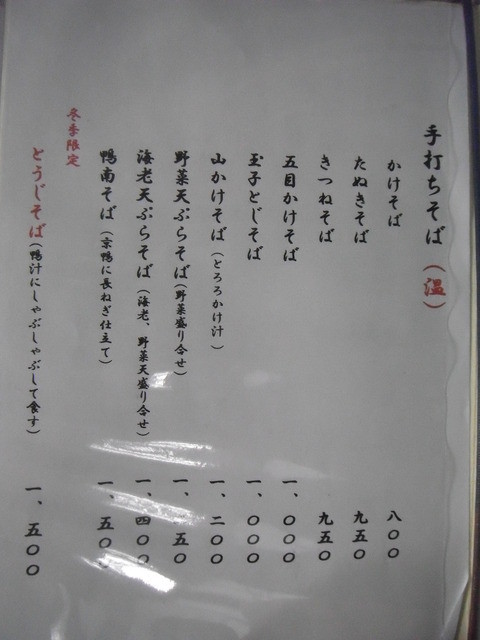 手打ちそば(温)
かけそば 八〇〇
たぬきそば 九五〇
きつねそば 九五〇
五目かけそば 一、〇〇〇
玉子とじそば 一、〇〇〇
山かけそば(とろろかけ汁) 一、二〇〇
野菜天ぷらそば(野菜盛り合せ) 一、五〇
海老天ぷらそば(海老、野菜天盛り合せ) 一、四〇〇
鴨南そば(京鴨に長ねぎ仕立て) 一、五〇〇
冬季限定
とうじそば(鴨汁にしゃぶしゃぶして食す) 一、五〇〇